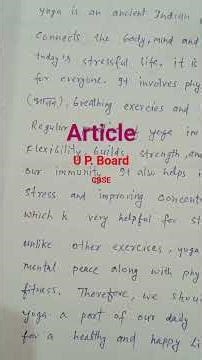 yoga is an ancient Indian
connects the body, mind and
today's stressful life, it is
for everyone. It involves phy
(आसन), breathing exercies and
Regular of yoga im
flexibility, builds strength, and
our immunity. It also helps i
stress and improving concent
which is very helpful for st
unlike other exercises, yoga
mental peace along with phy
fitness. Therefore, we shou
yoga a part of our daily
for a healthy and happy li
Article
U P. Board
CBSE